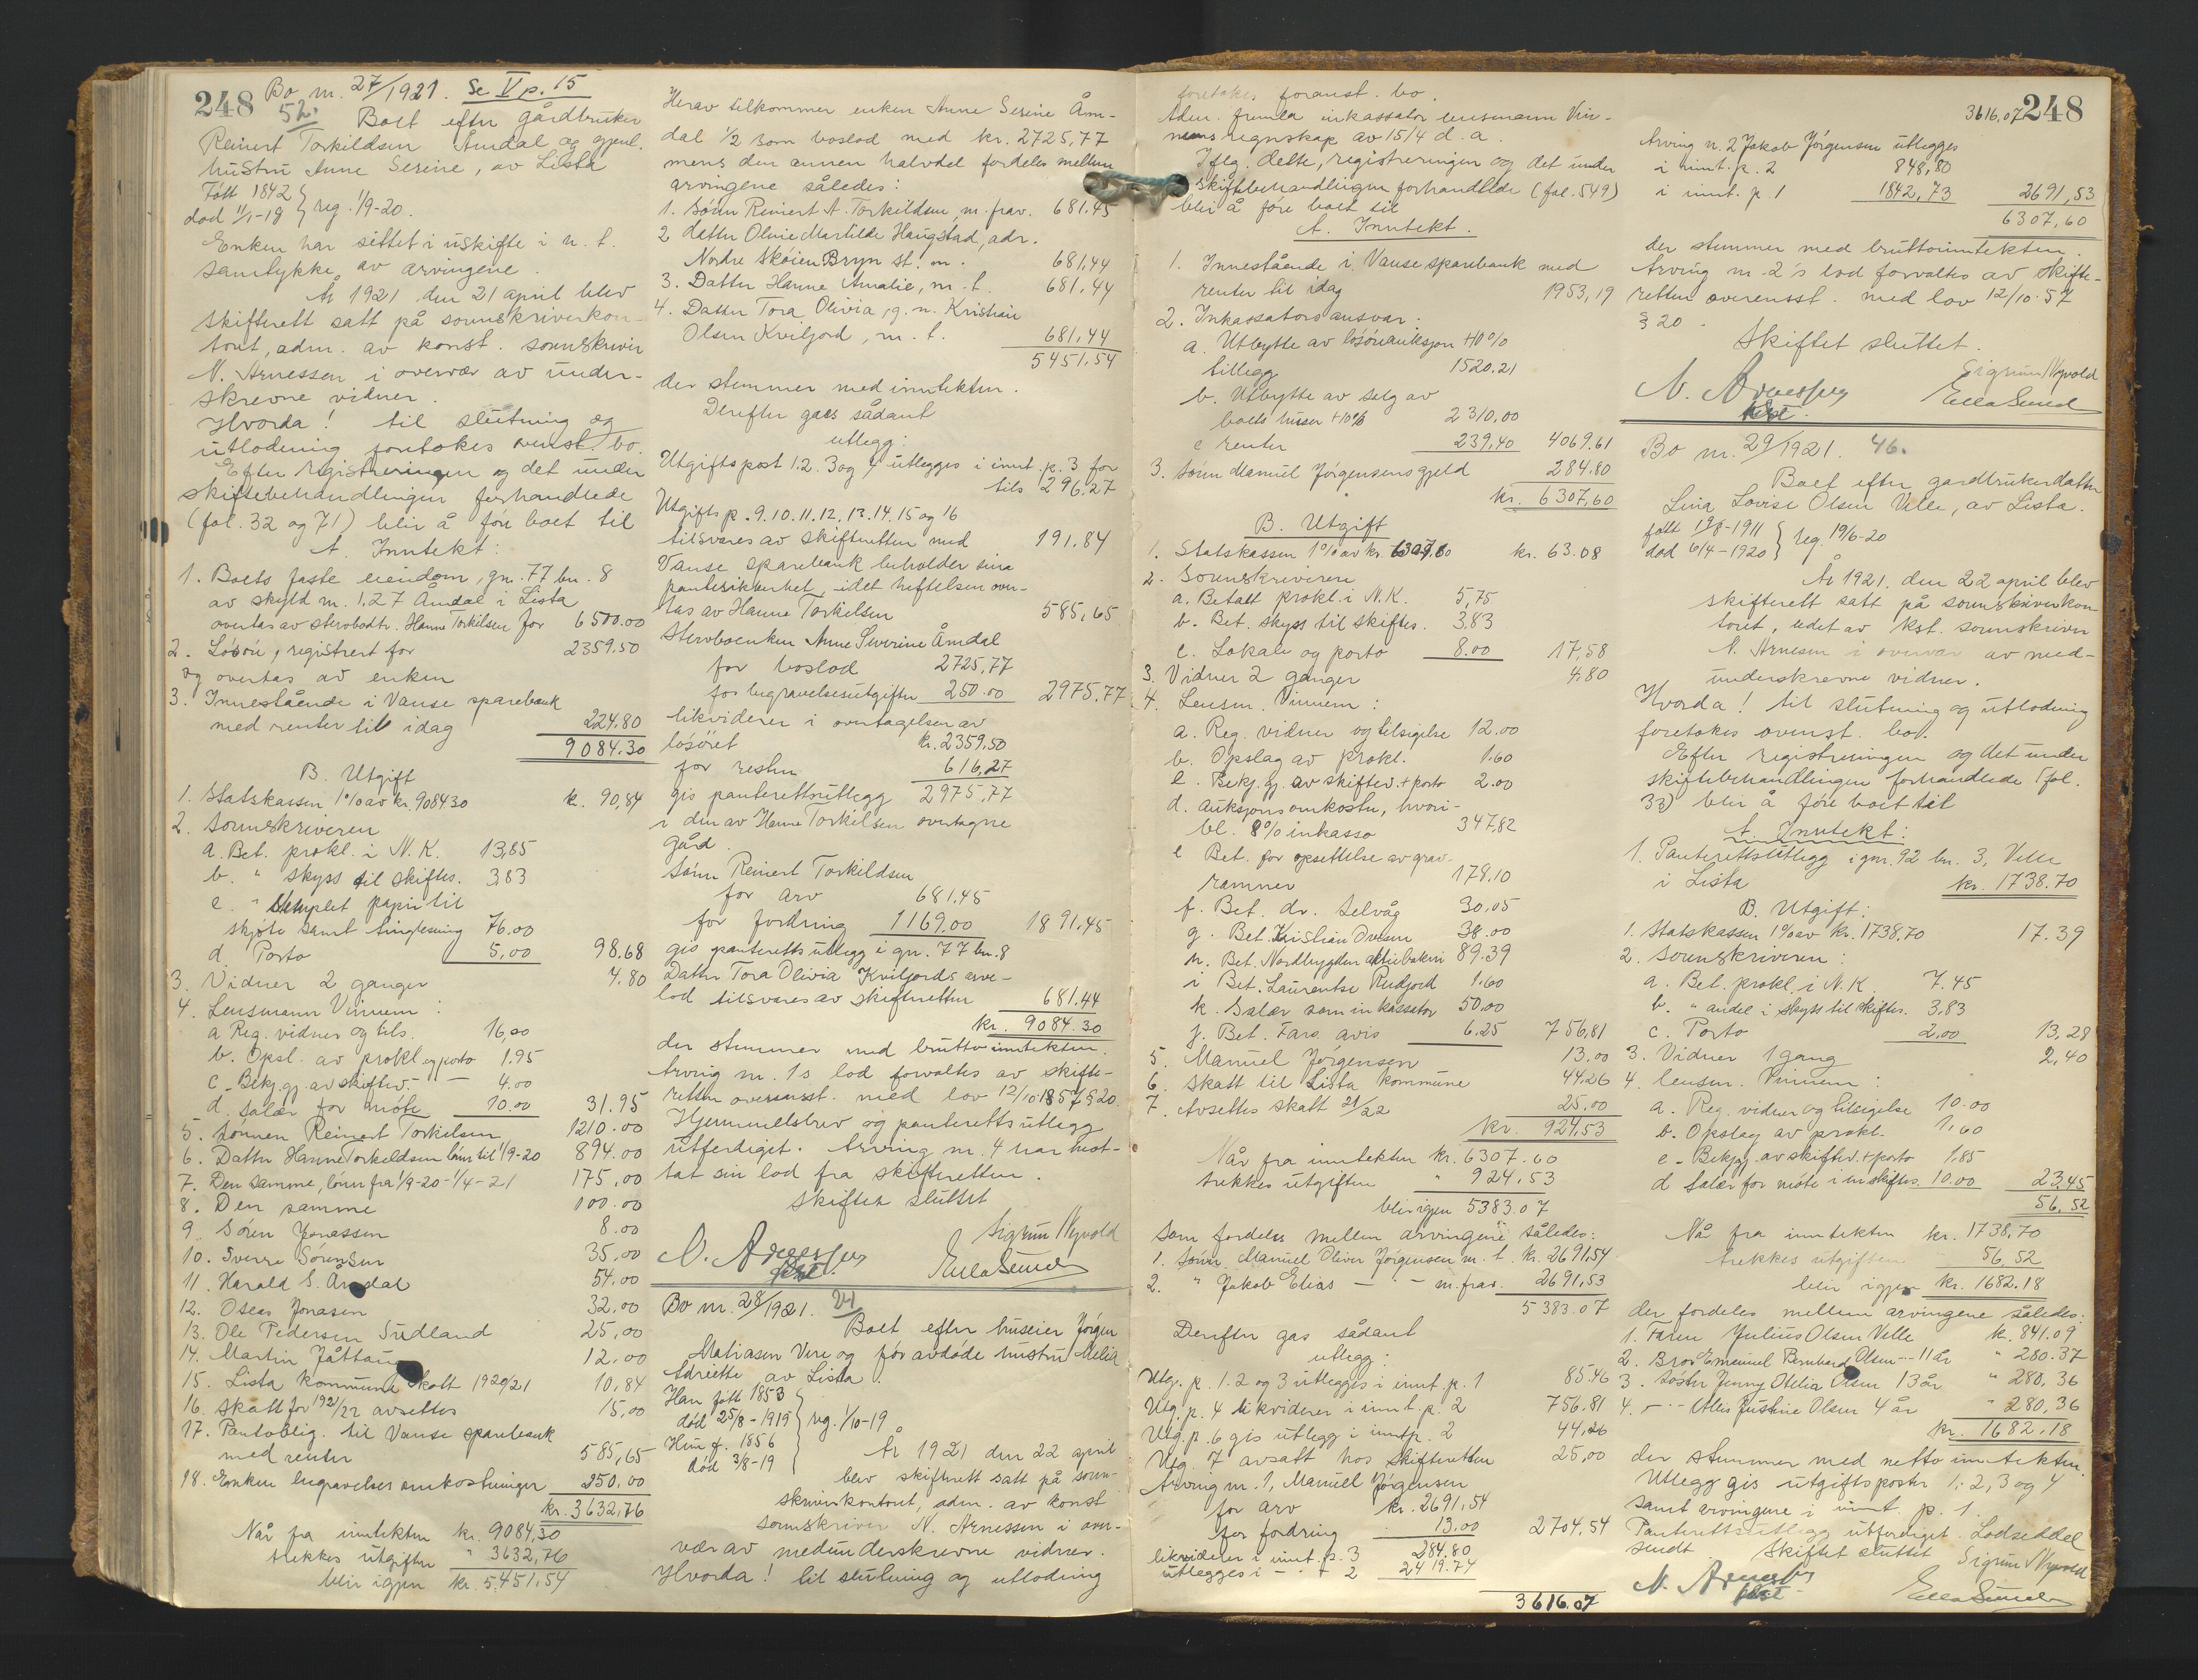 248 Bo nr. 27/1921. Se V p. 15
52. Boet efter gårdbruker
Reinert Torkildsen Åmdal og gjenl.
hustru Anne Serine, av Lista
Født 1842 } reg. 1/9-20.
død 11/1-19
Enken har sittet i uskifte i h. t.
samtykke av arvingene.
År 1921 den 21 april blev
skifterett satt på sorenskriverkon-
toret, adm. av konst. sorenskriver
N. Arnessen i overvær av under-
skrevne vidner.
Hvorda! til slutning og
utlodning foretokes ovenst. bo.
Efter registreringen og det under
skiftebehandlingen forhandlede
(fol. 32 og 71) blir å føre boet til
A. Inntekt:
1. Boets faste eiendom, gnr. 77 bnr. 8
av skyld m. 1,27 Åmdal i Lista
overtas av stervbodtr. Hanne Torkilsen for 6500.00
2. Løsøre, registrert for 2359.50
og overtas av enken
3. Innestående i Vanse sparebank
med renter til idag 224.80
9084.30
B. Utgift
1. Statskassen 1% av kr. 9084.30 kr. 90,84
2. Sorenskriveren
a. Bet. prokl. i N. K. 13,85
b. " skyss til skiftes. 3,83
c. " stemplet papir til
skjøte samt tinglesning 76.00
d. Porto 5,00 98.68
3. Vidner 2 ganger 4.80
4. Lensmann Vinnem:
a Reg. vidner og tils. 16,00
b. Opsl. av prokl. og porto 1.95
c. Bekj.gj. av skiftev. - 4.00
d. Salær for møte 10.00 31.95
5. Sønnen Reinert Torkilsen 1210.00
6. Datter Hanne Torkeldsen lønn til 1/9-20 894.00
7. Den samme, lønn fra 1/9-20 - 1/4-21 175,00
8. Den samme 100.00
9. Søren Jonassen 8.00
10. Sverre Sørensen 35,00
11. Harald S. Åmdal 54.00
12. Oseas Jonasen 32.00
13. Ole Pedersen Sudland 25,00
14. Martin 12.00
15. Lista kommune skatt 1920/21 10,84
16. Skatt for 1921/22 avsettes 15,00
17. Pantoblig. til Vanse sparebank
med renter 585,65
18. Enken begravelses omkostninger 250,00
kr. 3632,76
Når fra inntekten kr. 9084,30
trekkes utgiften " 3632,76
blir igjen kr. 5.451,54
Herav tilkommer enken Anne Serine Åm-
dal 1/2 som boslod med kr. 2725,77
mens den annen halvdel fordeles mellem
arvingene således:
1. Sønn Reinert A. Torkildsen, m. frav. 681.45
2 datter Olivie Martilde Haugstad, adr.
Nordre Skøien Bryn st. m. 681,44
3. Datter Hanne Amalie, m. t. 681,44
4. Datter Tora Olivia, g. m. Kristian
Olsen Kviljod, m. t. 681,44
5451.54
der stemmer med inntekten.
Derefter gaes sådant
utlegg:
Utgiftspost 1. 2. 3 og 4 utlegges i innt. p. 3 for
tils 296.27
Utgifts p. 9. 10. 11. 12. 13. 14. 15 og 16
tilsvares av skifteretten med 191.84
Vanse sparebank beholder sin
pantesikkerhet, idet heftelsen over-
tas av Hanne Torkilsen 585,65
Stervboenken Anne Severine Åmdal
for boslod 2725,77
for begravelsesutgifter 250.00 2975.77
likviderer i overtagelsen av
løsøret kr. 2359.50
for resten 616,27
gis panterettsutlegg 2975,77
i den av Hanne Torkilsen overtagne
gård.
Sønn Reinert Torkildsen
for arv 681.45
for fordring 1169,00 1891,45
gis panteretts utlegg i gnr. 77 bnr. 8
Datter Tora Olivia Kviljords arve-
lod tilsvares av skifteretten 681.44
kr. 9084.30
der stemmer med bruttoinntekten.
Arving nr. 1s lod forvaltes av skifte-
retten overensst. med lov 12/10 1857 § 20.
Hjemmelsbrev og panteretts utlegg
utferdiget. Arving nr. 4 har mot-
tat sin lod fra skifteretten.
Skiftet sluttet
N. Arnessen
kst.
Sigrun Nyvold
Ella Sunde
Bo nr. 28/1921. 21
Boet efter huseier Jørgen
Matiasen Vere og før avdøde hustru Melia
Adriette av Lista.
Han født 1853
død 25/8-1919 } reg. 1/10-19
Hun f. 1856
død 3/8-19
År 1921 den 22 april
blev skifterett satt på soren-
skriverkontoret, adm. av konst
sorenskriver N. Arnessen i over-
vær av medunderskrevne vidner.
Hvorda! til slutning og utlodning
foretokes foranst. bo.
Adm. fremla inkassator lensmann Vin-
nems regnskap av 15/4 d. a.
Iflg. dette, registreringen og det under
skiftebehandlingen forhandlede (fol. 549)
blir å føre boet til
A. Inntekt.
1. Innestående i Vanse sparebank med
renter til idag 1953,19
2. Inkassators ansvar:
a. Utbytte av løsøreauksjon +10%
tillegg 1520.21
b. Utbytte av salg av
boets huser +10% 2310,00
c renter 239,40 4069.61
3. Sønn Manuel Jørgensens gjeld 284.80
kr. 6307,60
B. Utgift
1. Statskassen 1% av kr. 6307,60 kr. 63.08
2. Sorenskriveren
a. Betalt prokl. i N.K. 5,75
b. Bet. skyss til skiftes. 3,83
c. Lokale og porto 8.00 17,58
3. Vidner 2 ganger 4,80
4. Lensm. Vinnem:
a. Reg. vidner og tilsigelse 12.00
b. Opslag av prokl. 1.60
c. Bekj. gj. av skiftev. + porto 2.00
d. auksjonsomkostn., hvori-
bl. 8% inkasso 347,82
e Bet. for opsettelse av grav-
rammer 179.10
f. Bet. dr. Selvåg 30,05
g. Bet. Kristian Ovesen 38.00
h. Bet. Nordbygden aktiebakeri 89.39
i Bet. Laurentse Rudjord 1.60
k. Salær som inkassator 50,00
j. Bet. Fars. avis 6.25 756,81
5. Manuel Jørgensen 13.00
6. Skatt til Lista kommune 44,26
7. Avsettes skatt 21/22 25,00
kr. 924,53
Når fra inntekten kr. 6307.60
trekkes utgiften " 924,53
blir igjen 5383.07
som fordeles mellem arvingene således:
1. Sønn Manuel Oliver Jørgensen m. t. kr. 2691,54
2. " Jakob Elias - " - m. frav. 2691,53
5383.07
Derefter gås sådant
utlegg:
Utg. p. 1. 2 og 3 utlegges i innt. p. 1 85.46
Utg. p. 4 likviderer i innt. p. 2 756.81
Utg. p. 6 gis utlegg i innt. p. 2 44,26
Utg. 7 avsatt hos skifteretten 25,00
Arving nr. 1, Manuel Jørgensen
for arv kr. 2691,54
for fordring 13.00 2704,54
likviderer i innt. p. 3 284.80
utlegges i - " - 2 2419.74
3616.07
3616.07 248
Arving nr. 2 Jakob Jørgensen utlegges
i innt. p. 2 848,80
i innt. p. 1 1842,73 2691,53
6307,60
der stemmer med bruttoinntekten.
Arving nr. 2's lod forvaltes av skifte-
retten overensst. med lov 12/10-57
§ 20.
Skiftet sluttet.
N. Arnessen
kst.
Sigrun Nyvold
Ella Sunde
Bo nr. 29/1921. 46.
Boet efter gardbrukerdatter
Lina Lovise Olsen Velle, av Lista.
født 19/8-1911 } reg. 19/6-20
død 6/4-1920
År 1921. den 22 april blev
skifterett satt på sorenskriverkon
toret, ledet av kst. sorenskriver
N. Arnesen i overvær av med-
underskrevne vidner.
Hvorda! til slutning og utlodning
foretokes ovenst. bo.
Efter registreringen og det under
skiftebehandlingen forhandlede (fol.
33) blir å føre boet til
A. Inntekt:
1. Panterettsutlegg i gnr. 92 bnr. 3, Velle
i Lista kr. 1738.70
B. Utgift:
1. Statskassen 1% av kr. 1738,70 17.39
2. Sorenskriveren:
a. Bet. prokl. i N.K. 7.45
b. " andel i skyss til skiftes. 3,83
c. Porto 2,00 13,28
3. Vidner 1 gang 2,40
4. Lensm. Vinnem:
a. Reg. vidner og tilsigelse 10.00
b. Opslag av prokl. 1,60
c - Bekj.gj. av skiftev. + porto 1.85
d Salær for møte i skiftes. 10.00 23.45
56,52
Nå fra inntekten kr. 1738,70
trekkes utgiften 56,52
blir igjen kr. 1682.18
der fordeles mellem arvingene således:
1. Faren Julius Olsen Velle kr. 841.09
2. Bror Emanuel Bernhard Olsen - 11 år " 280.37
3. Søster Jenny Otelia Olsen 13 år " 280,36
4. - " - Justine Olsen 4 år " 280,36
kr. 1682.18
der stemmer med netto inntekten.
Utlegg gis utgiftsposter 1, 2, 3 og 4
samt arvingene i innt. p. 1.
Panterettsutlegg utferdiget. Lodseddel
sendt Skiftet sluttet
N. Arnessen
kst.
Sigrun Nyvold
Ella Sunde